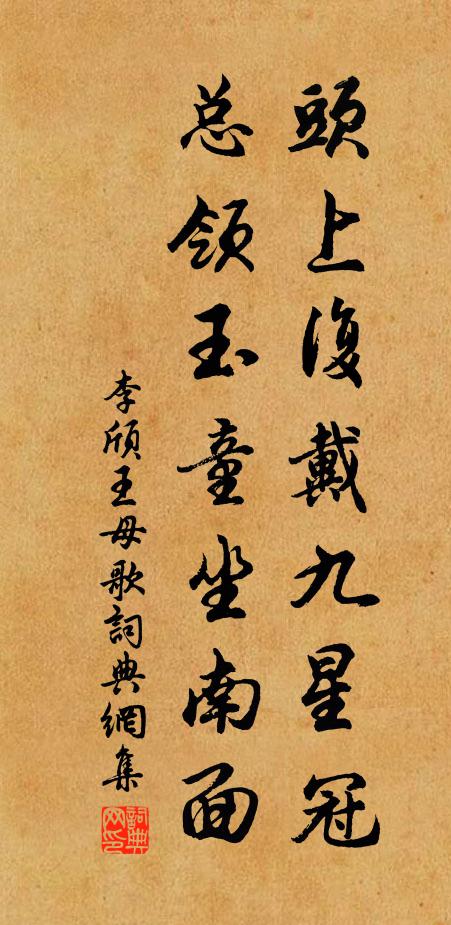 頭上復戴九星冠
总領玉童坐南面
李頎王母歌詞典網集
詞典网印